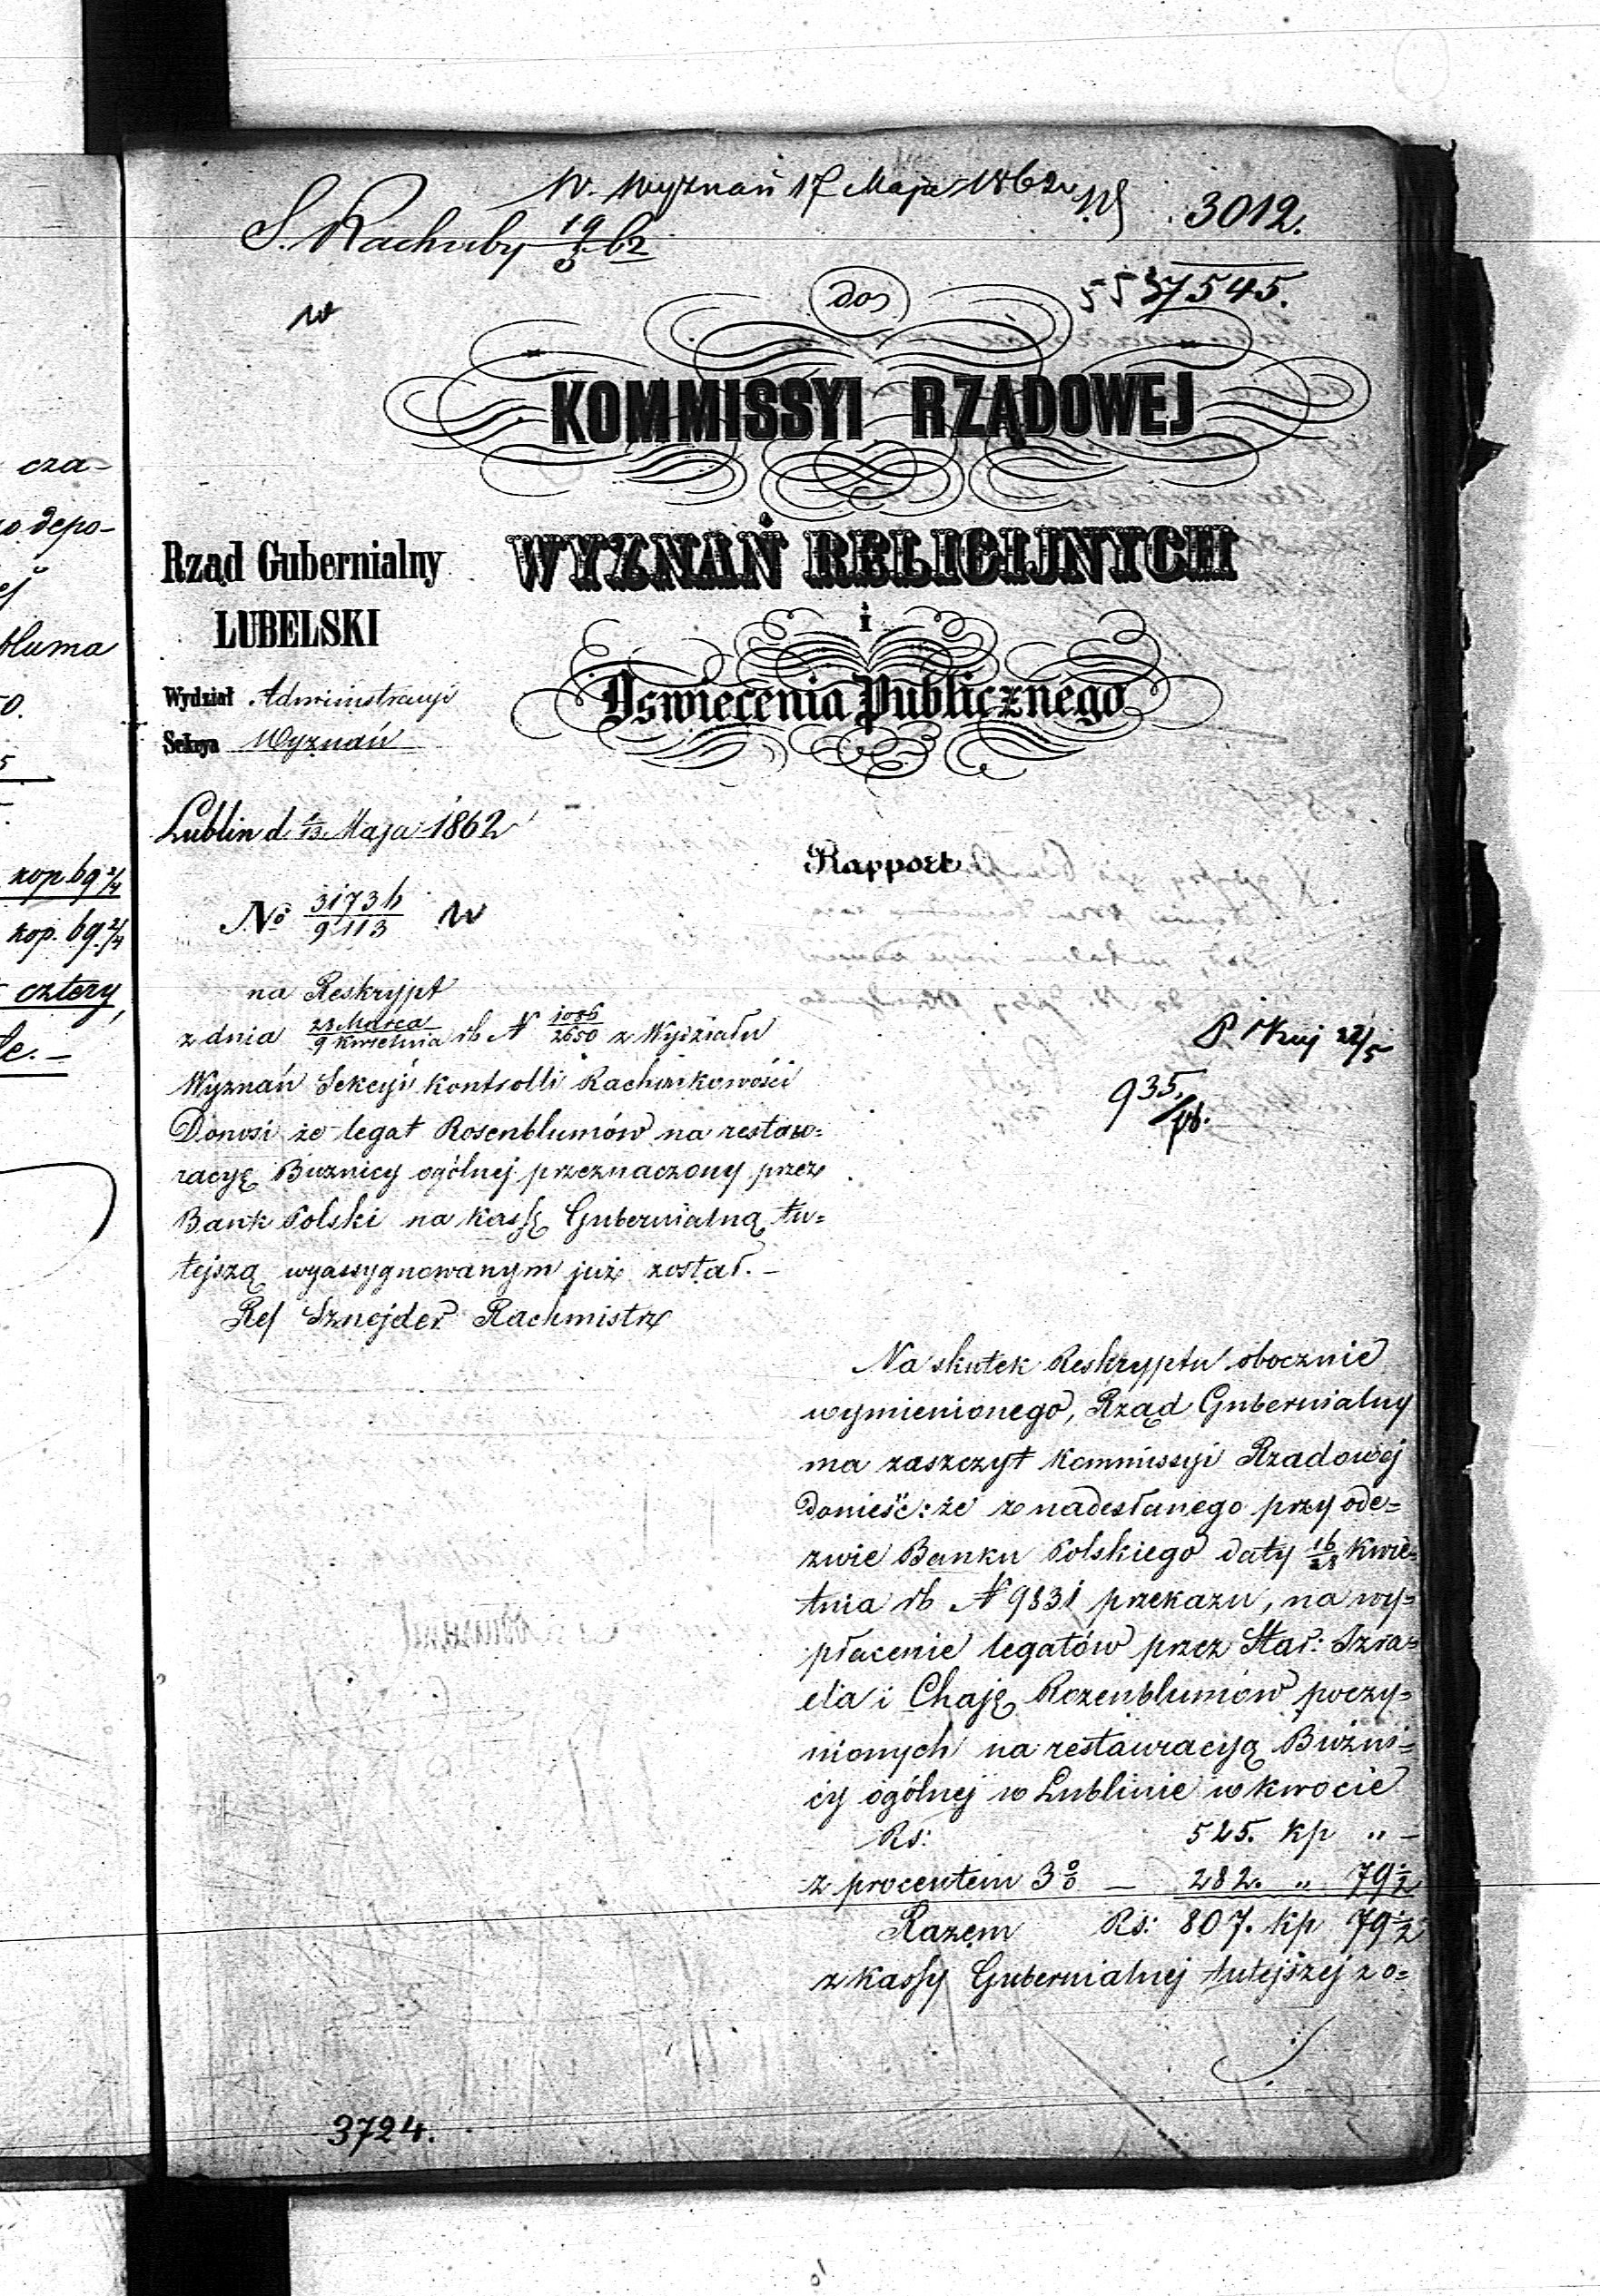 cza-
depo-
bluma
kop 69 2/4
kop. 69 2/4
cztery,
W. Wyznań 17 Maja 1862
3012.
S. Rachuby 19/5 62
do
KOMMISSYI RZĄDOWEJ
WYZNAŃ RELIGIJNYCH
i
Oswiecenia Publicznego
Rząd Gubernialny
LUBELSKI
Wydział Administracyi
Sekcya Wyznań
Lublin d. 1/13 Maja 1862
Rapport
No 31736/9113
na Reskrypt
z dnia 28 Marca/9 Kwietnia rb N 1086/2650 z Wydziału
Wyznań Sekcyi Kontrolli Rachunkowości
Donosi że legat Rosenblumów na restaw=
racyę Bużnicy ogólnej przeznaczony przez
Bank Polski na kassę Gubernialną tu=
tejszą wyassygnowanym już został. –
Ref Sznejder Rachmistrz
22/5
935.
Na skutek Reskryptu obocznie
wymienionego, Rząd Gubernialny
ma zaszczyt Kommissyi Rządowej
donieść: że z nadesłanego przy ode=
zwie Banku Polskiego daty 16/28 Kwie=
tnia rb N 9831 przekazu, na wy=
płacenie legatów przez Star: Szra=
ela i Chaję Rozenblumów poczy=
nionych na restauracyą Bużni=
cy ogólnej w Lublinie w kwocie
Rs: 525. kp „ –
z procentem 3% – 282. „ 79 1/2
Razem Rs: 807. kp 79 1/2
z kassy Gubernialnej tutejszej zo=
3724.